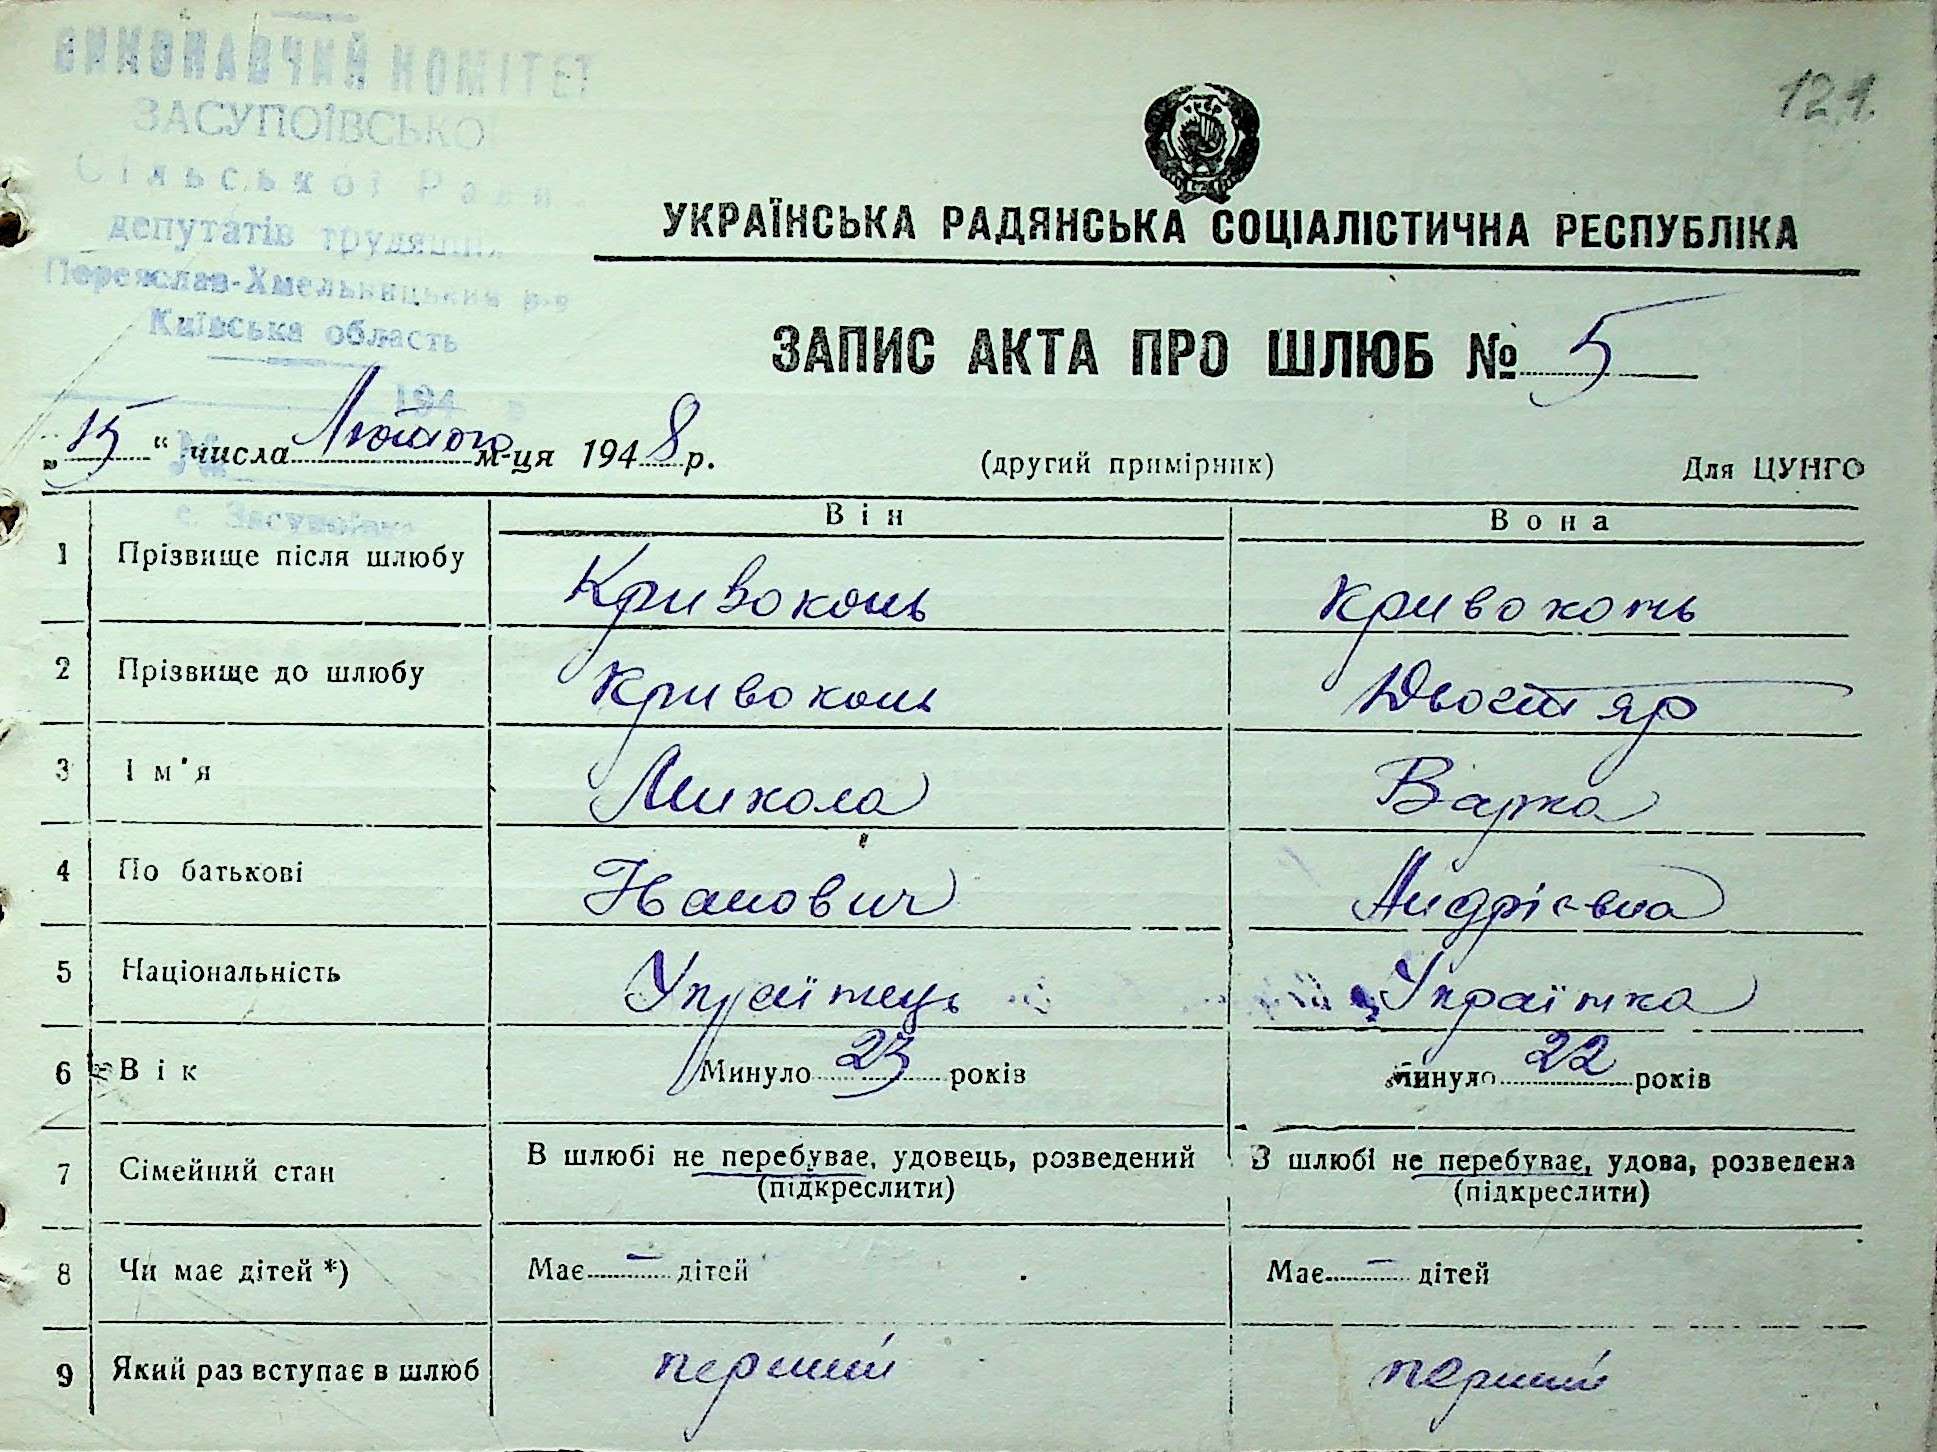 ВИКОНАВЧИЙ КОМІТЕТ
ЗАСУПОЇВСЬКОЇ
Сільської Ради
депутатів трудящих
Переяслав-Хмельницький р-н
Київська область
194 р
№
с. Засупоївка
121.
УКРАЇНСЬКА РАДЯНСЬКА СОЦІАЛІСТИЧНА РЕСПУБЛІКА
ЗАПИС АКТА ПРО ШЛЮБ № 5
„15“ числа Лютого м-ця 1948 р. (другий примірник) Для ЦУНГО
Він Вона
1 Прізвище після шлюбу Кривоконь Кривоконь
2 Прізвище до шлюбу Кривоконь
3 Ім'я Микола Варка
4 По батькові Іванович Андрієвна
5 Національність Українець Українка
6 Вік Минуло 23 років Минуло 22 років
7 Сімейний стан В шлюбі не перебуває, удовець, розведений В шлюбі не перебуває, удова, розведена
(підкреслити) (підкреслити)
8 Чи має дітей *) Має – дітей Має – дітей
9 Який раз вступає в шлюб перший перший